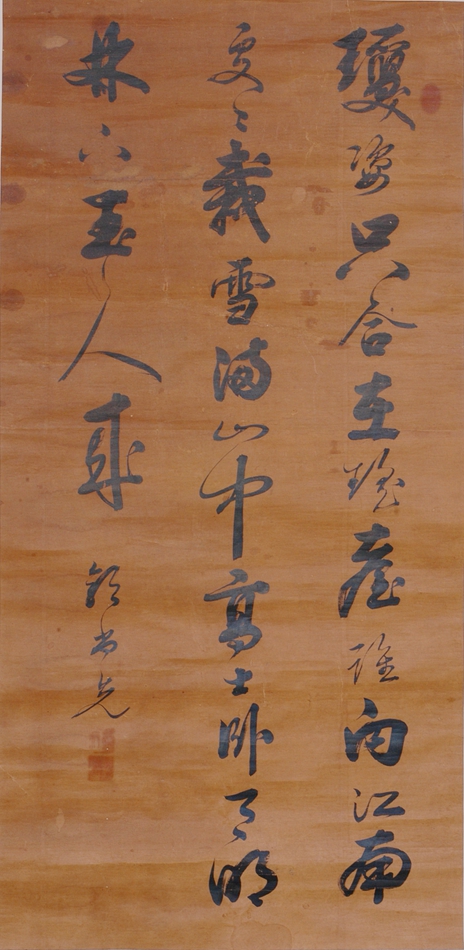 瓊姿只合在瑤臺誰向江南
處々栽雪滿山中高士臥月明
林下美人來 郭尚先